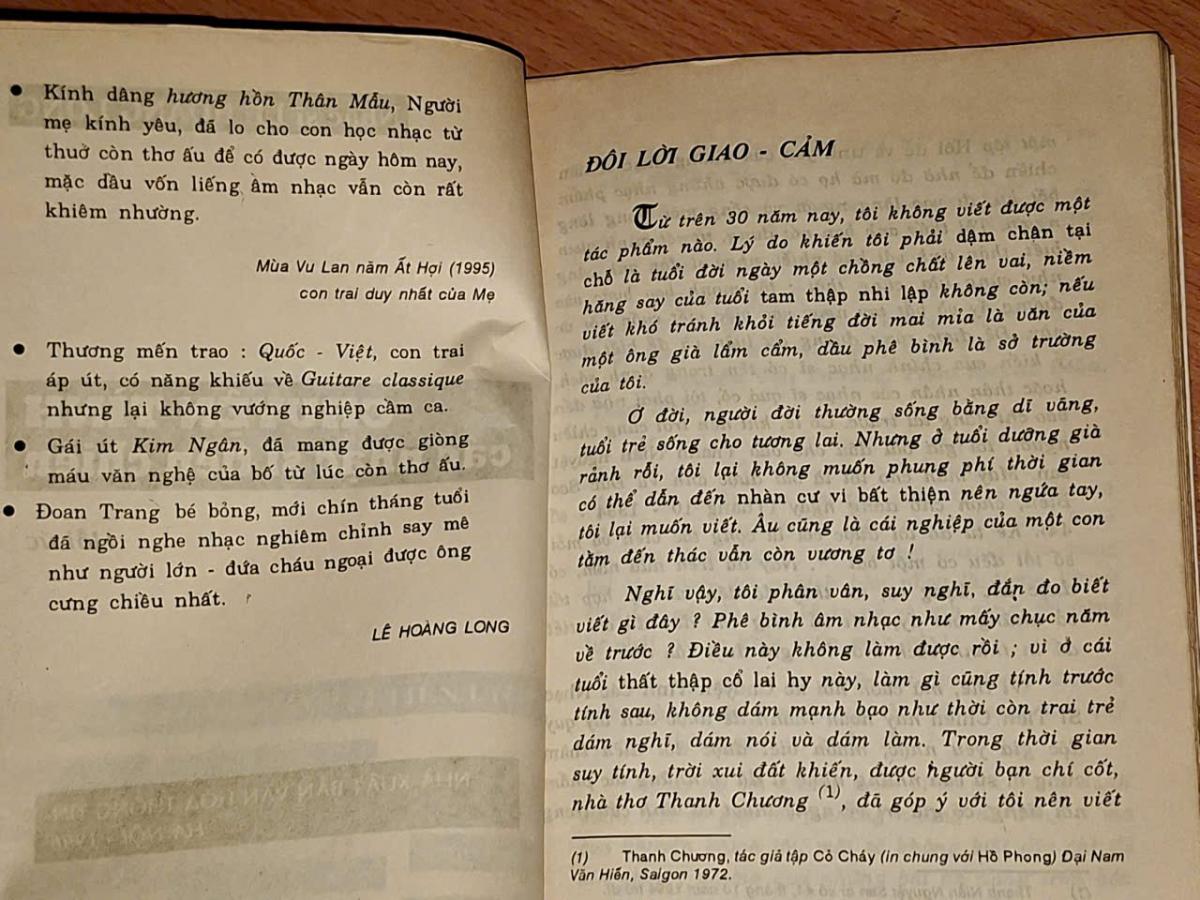 • Kính dâng hương hồn Thân Mẫu, Người
mẹ kính yêu, đã lo cho con học nhạc từ
thuở còn thơ ấu để có được ngày hôm nay,
mặc dầu vốn liếng âm nhạc vẫn còn rất
khiêm nhường.
Mùa Vu Lan năm Ất Hợi (1995)
con trai duy nhất của Mẹ
• Thương mến trao : Quốc - Việt, con trai
áp út, có năng khiếu về Guitare classique
nhưng lại không vướng nghiệp cầm ca.
• Gái út Kim Ngân, đã mang được giòng
máu văn nghệ của bố từ lúc còn thơ ấu.
• Đoan Trang bé bỏng, mới chín tháng tuổi
đã ngồi nghe nhạc nghiêm chỉnh say mê
như người lớn - đứa cháu ngoại được ông
cưng chiều nhất.
LÊ HOÀNG LONG
ĐÔI LỜI GIAO - CẢM
Từ trên 30 năm nay, tôi không viết được một
tác phẩm nào. Lý do khiến tôi phải dậm chân tại
chỗ là tuổi đời ngày một chồng chất lên vai, niềm
hăng say của tuổi tam thập nhi lập không còn; nếu
viết khó tránh khỏi tiếng đời mai mỉa là văn của
một ông già lẩm cẩm, dầu phê bình là sở trường
của tôi.
Ở đời, người đời thường sống bằng dĩ vãng,
tuổi trẻ sống cho tương lai. Nhưng ở tuổi dưỡng già
rảnh rỗi, tôi lại không muốn phung phí thời gian
có thể dẫn đến nhàn cư vi bất thiện nên ngứa tay,
tôi lại muốn viết. Âu cũng là cái nghiệp của một con
tằm đến thác vẫn còn vương tơ !
Nghĩ vậy, tôi phân vân, suy nghĩ, đắn đo biết
viết gì đây ? Phê bình âm nhạc như mấy chục năm
về trước ? Điều này không làm được rồi ; vì ở cái
tuổi thất thập cổ lai hy này, làm gì cũng tính trước
tính sau, không dám mạnh bạo như thời còn trai trẻ
dám nghĩ, dám nói và dám làm. Trong thời gian
suy tính, trời xui đất khiến, được người bạn chí cốt,
nhà thơ Thanh Chương (1), đã góp ý với tôi nên viết
(1) Thanh Chương, tác giả tập Cỏ Cháy (in chung với Hồ Phong) Đại Nam
Văn Hiến, Saigon 1972.